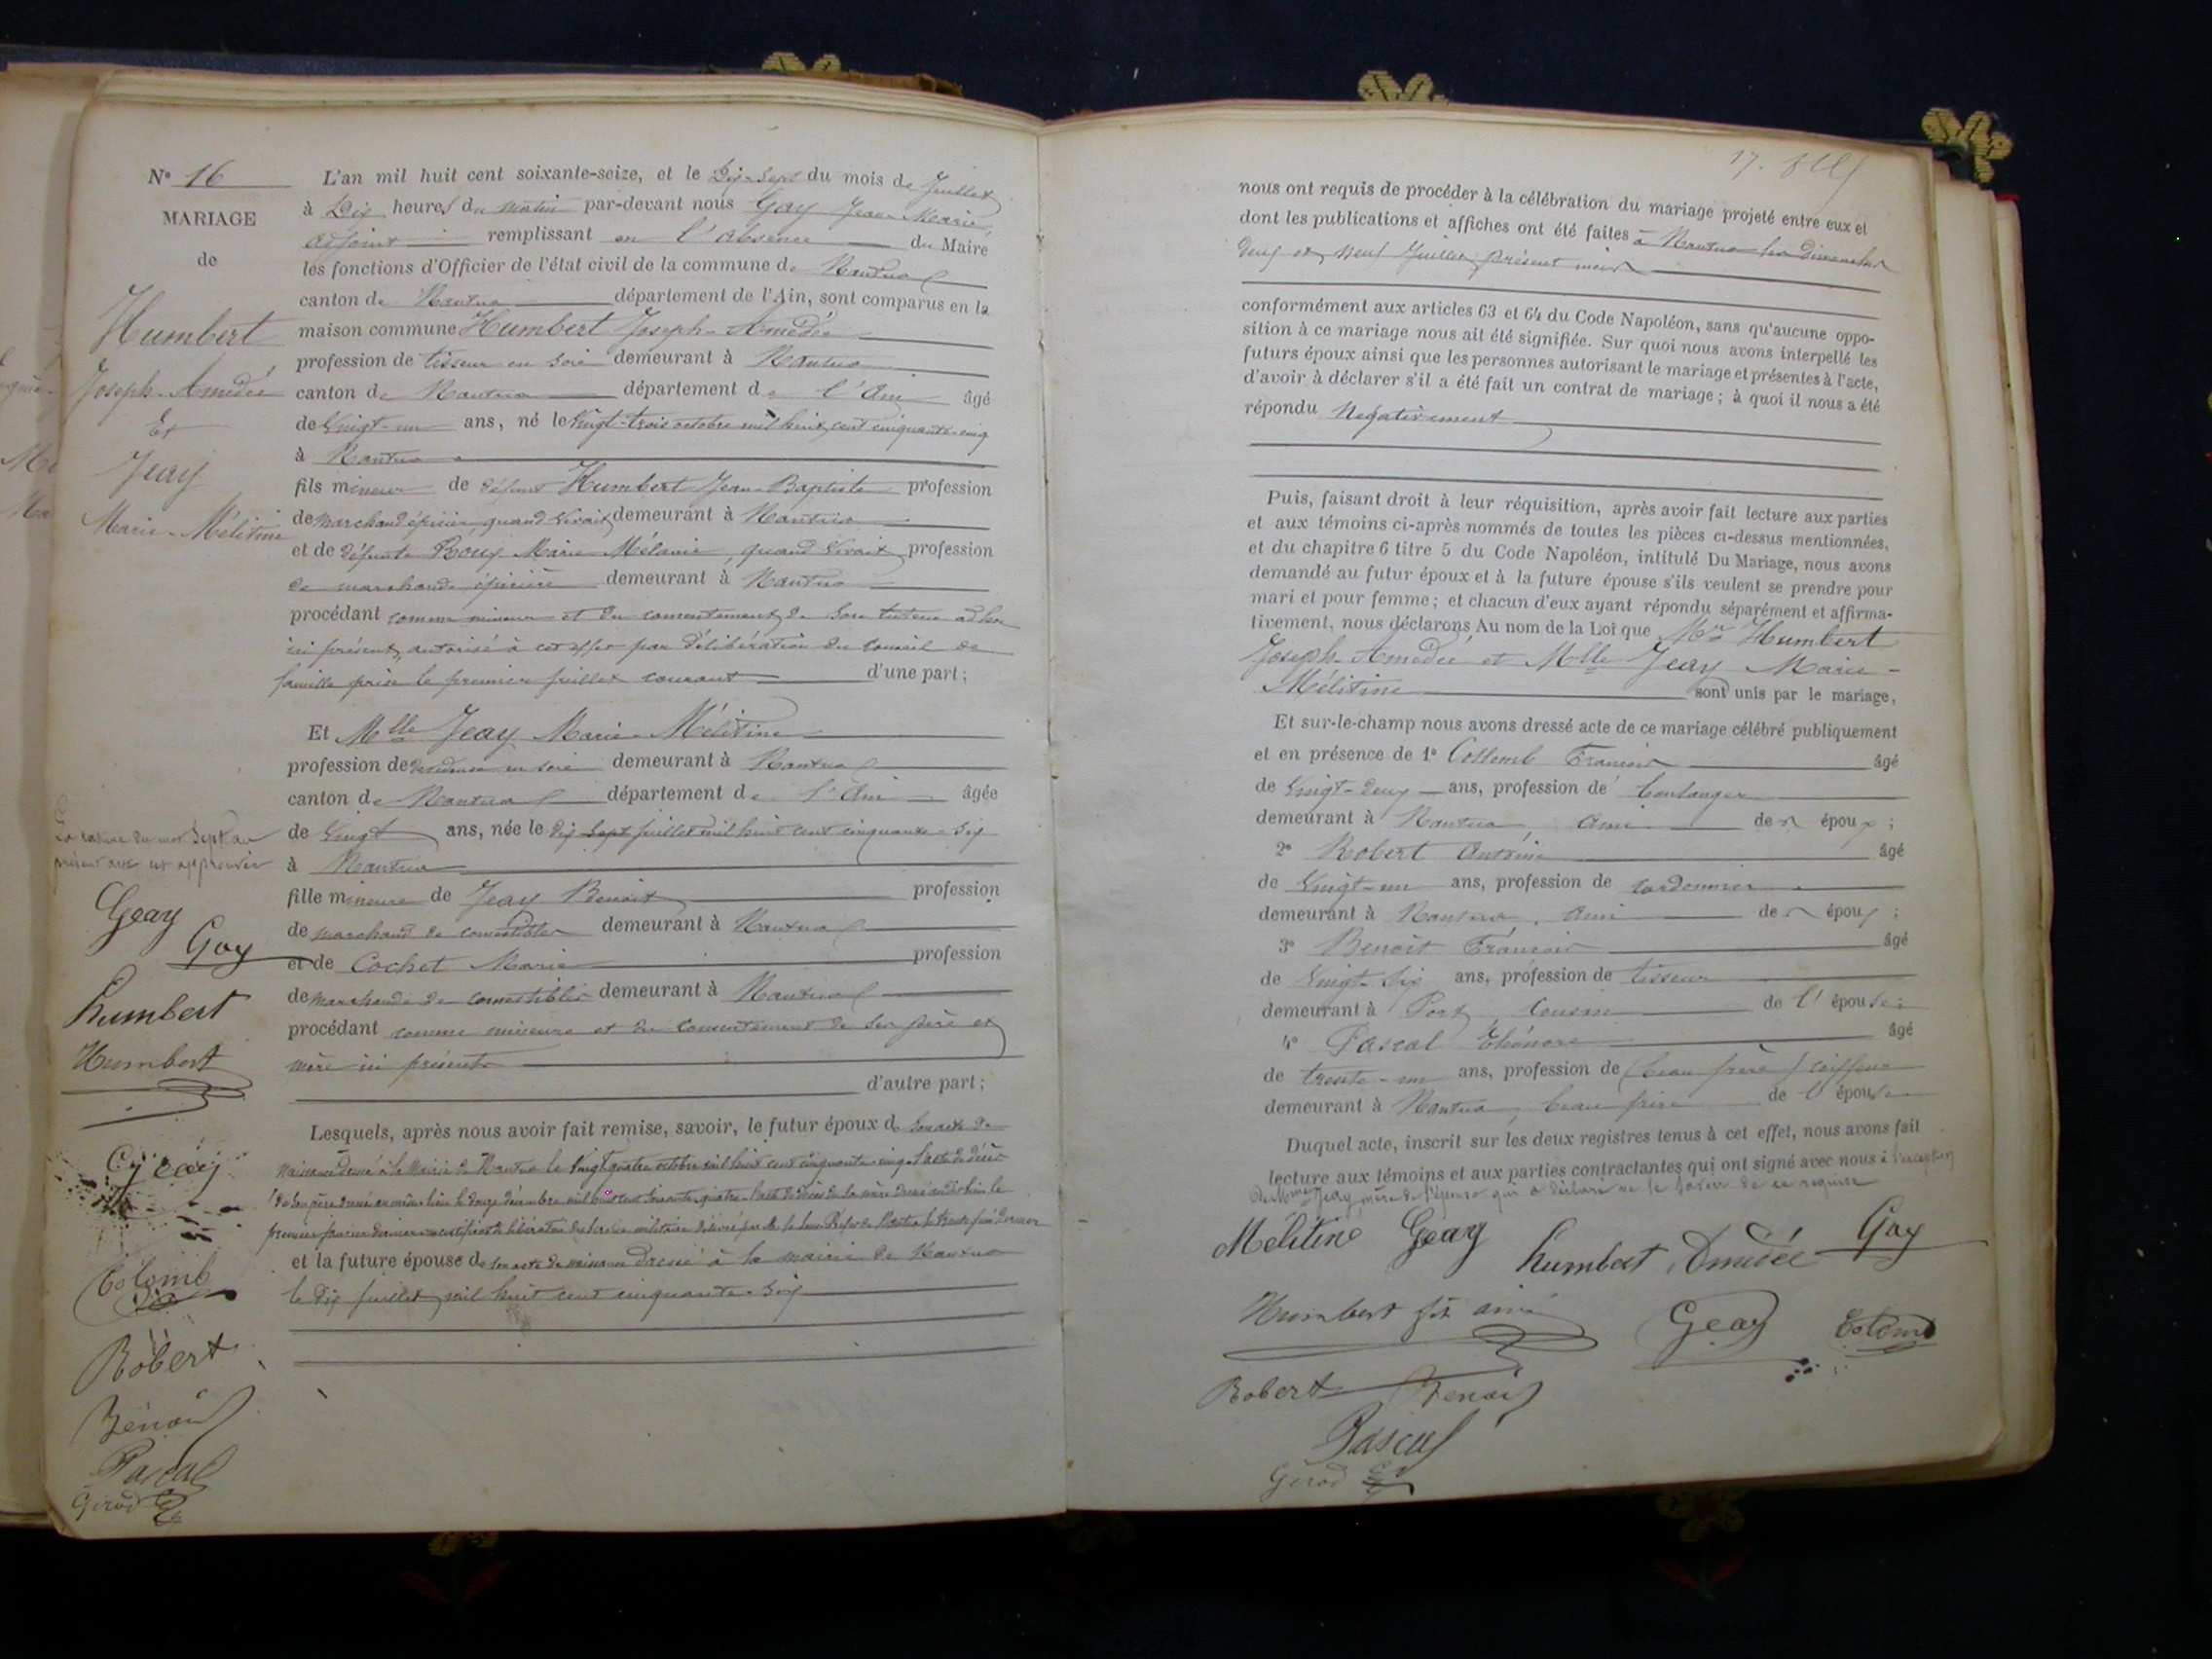 N° 16
MARIAGE
de
Humbert
Joseph-Amédée
Et
Jeay
Marie-Mélitine
L'an mil huit cent soixante-seize, et le Dix-Sept du mois de Juillet
à Dix heures du matin par-devant nous Gay Jean-Marie,
adjoint remplissant en l'absence du Maire
les fonctions d'Officier de l'état civil de la commune de Nantua
canton de Nantua département de l'Ain, sont comparus en la
maison commune Humbert Joseph-Amédée
profession de tisseur en soie demeurant à Nantua
canton de Nantua département de l'Ain âgé
de Vingt-un ans, né le Vingt-trois octobre mil huit cent cinquante-cinq
à Nantua
fils mineur de défunt Humbert Jean-Baptiste profession
de marchand épicier quand vivait demeurant à Nantua
et de défunte Roux Marie Mélanie, quand vivait profession
de marchande épicière demeurant à Nantua
procédant comme mineur et du consentement de son tuteur ad hoc
ici présent, autorisé à cet effet par délibération du Conseil de
famille prise le premier juillet courant d'une part;
Et Mlle Jeay Marie-Mélitine
profession de dévideuse en soie demeurant à Nantua
canton de Nantua département de l'Ain âgée
de Vingt ans, née le dix Sept juillet mil huit cent cinquante-six
à Nantua
fille mineure de Jeay Benoit profession
de marchand de comestibles demeurant à Nantua
et de Cochet Marie profession
de marchande de comestibles demeurant à Nantua
procédant comme mineure et du consentement de ses père et
mère ici présents
d'autre part;
La rature du mot Sept au
présent acte est approuvée
Geay
Gay
humbert
Humbert
Geay
Colomb
Robert
Benoit
Pascal
Girod
Lesquels, après nous avoir fait remise, savoir, le futur époux de son acte de
naissance dressé à la Mairie de Nantua le Vingt quatre octobre mil huit cent cinquante-cinq. l'acte de décès
de son père dressé au même lieu le douze décembre mil huit cent soixante quatre. l'acte de décès de sa mère dressé audit lieu le
premier janvier dernier certificat de libération du service militaire délivré par Mr le Sous Préfet de Nantua le trente juin dernier
et la future épouse de son acte de naissance dressé à la mairie de Nantua
le dix juillet mil huit cent cinquante-six
17.
nous ont requis de procéder à la célébration du mariage projeté entre eux et
dont les publications et affiches ont été faites à Nantua les Dimanches
deux et neuf Juillet présent mois
conformément aux articles 63 et 64 du Code Napoléon, sans qu'aucune oppo-
sition à ce mariage nous ait été signifiée. Sur quoi nous avons interpellé les
futurs époux ainsi que les personnes autorisant le mariage et présentes à l'acte,
d'avoir à déclarer s'il a été fait un contrat de mariage; à quoi il nous a été
répondu Négativement
Puis, faisant droit à leur réquisition, après avoir fait lecture aux parties
et aux témoins ci-après nommés de toutes les pièces ci-dessus mentionnées,
et du chapitre 6 titre 5 du Code Napoléon, intitulé Du Mariage, nous avons
demandé au futur époux et à la future épouse s'ils veulent se prendre pour
mari et pour femme; et chacun d'eux ayant répondu séparément et affirma-
tivement, nous déclarons Au nom de la Loi que Mr Humbert
Joseph-Amédée et Mlle Jeay Marie-
Mélitine sont unis par le mariage,
Et sur-le-champ nous avons dressé acte de ce mariage célébré publiquement
et en présence de 1° Collomb François âgé
de Vingt-deux ans, profession de boulanger
demeurant à Nantua, ami des époux;
2° Robert Antoine âgé
de Vingt-un ans, profession de cordonnier
demeurant à Nantua, ami des époux;
3° Benoît François âgé
de Vingt-six ans, profession de tisseur
demeurant à Port, Cousin de l'épouse;
4° Pascal Eléonore âgé
de trente-un ans, profession de (beau frère) coiffeur
demeurant à Nantua, beau frère de l'épouse
Duquel acte, inscrit sur les deux registres tenus à cet effet, nous avons fait
lecture aux témoins et aux parties contractantes qui ont signé avec nous à l'exception
de Mme Jeay, mère de l'épouse qui a déclaré ne le savoir de ce requise
Mélitine Geay humbert Amédée Gay
Humbert fils ainé Geay Colomb
Robert Benoit
Pascal
Girod